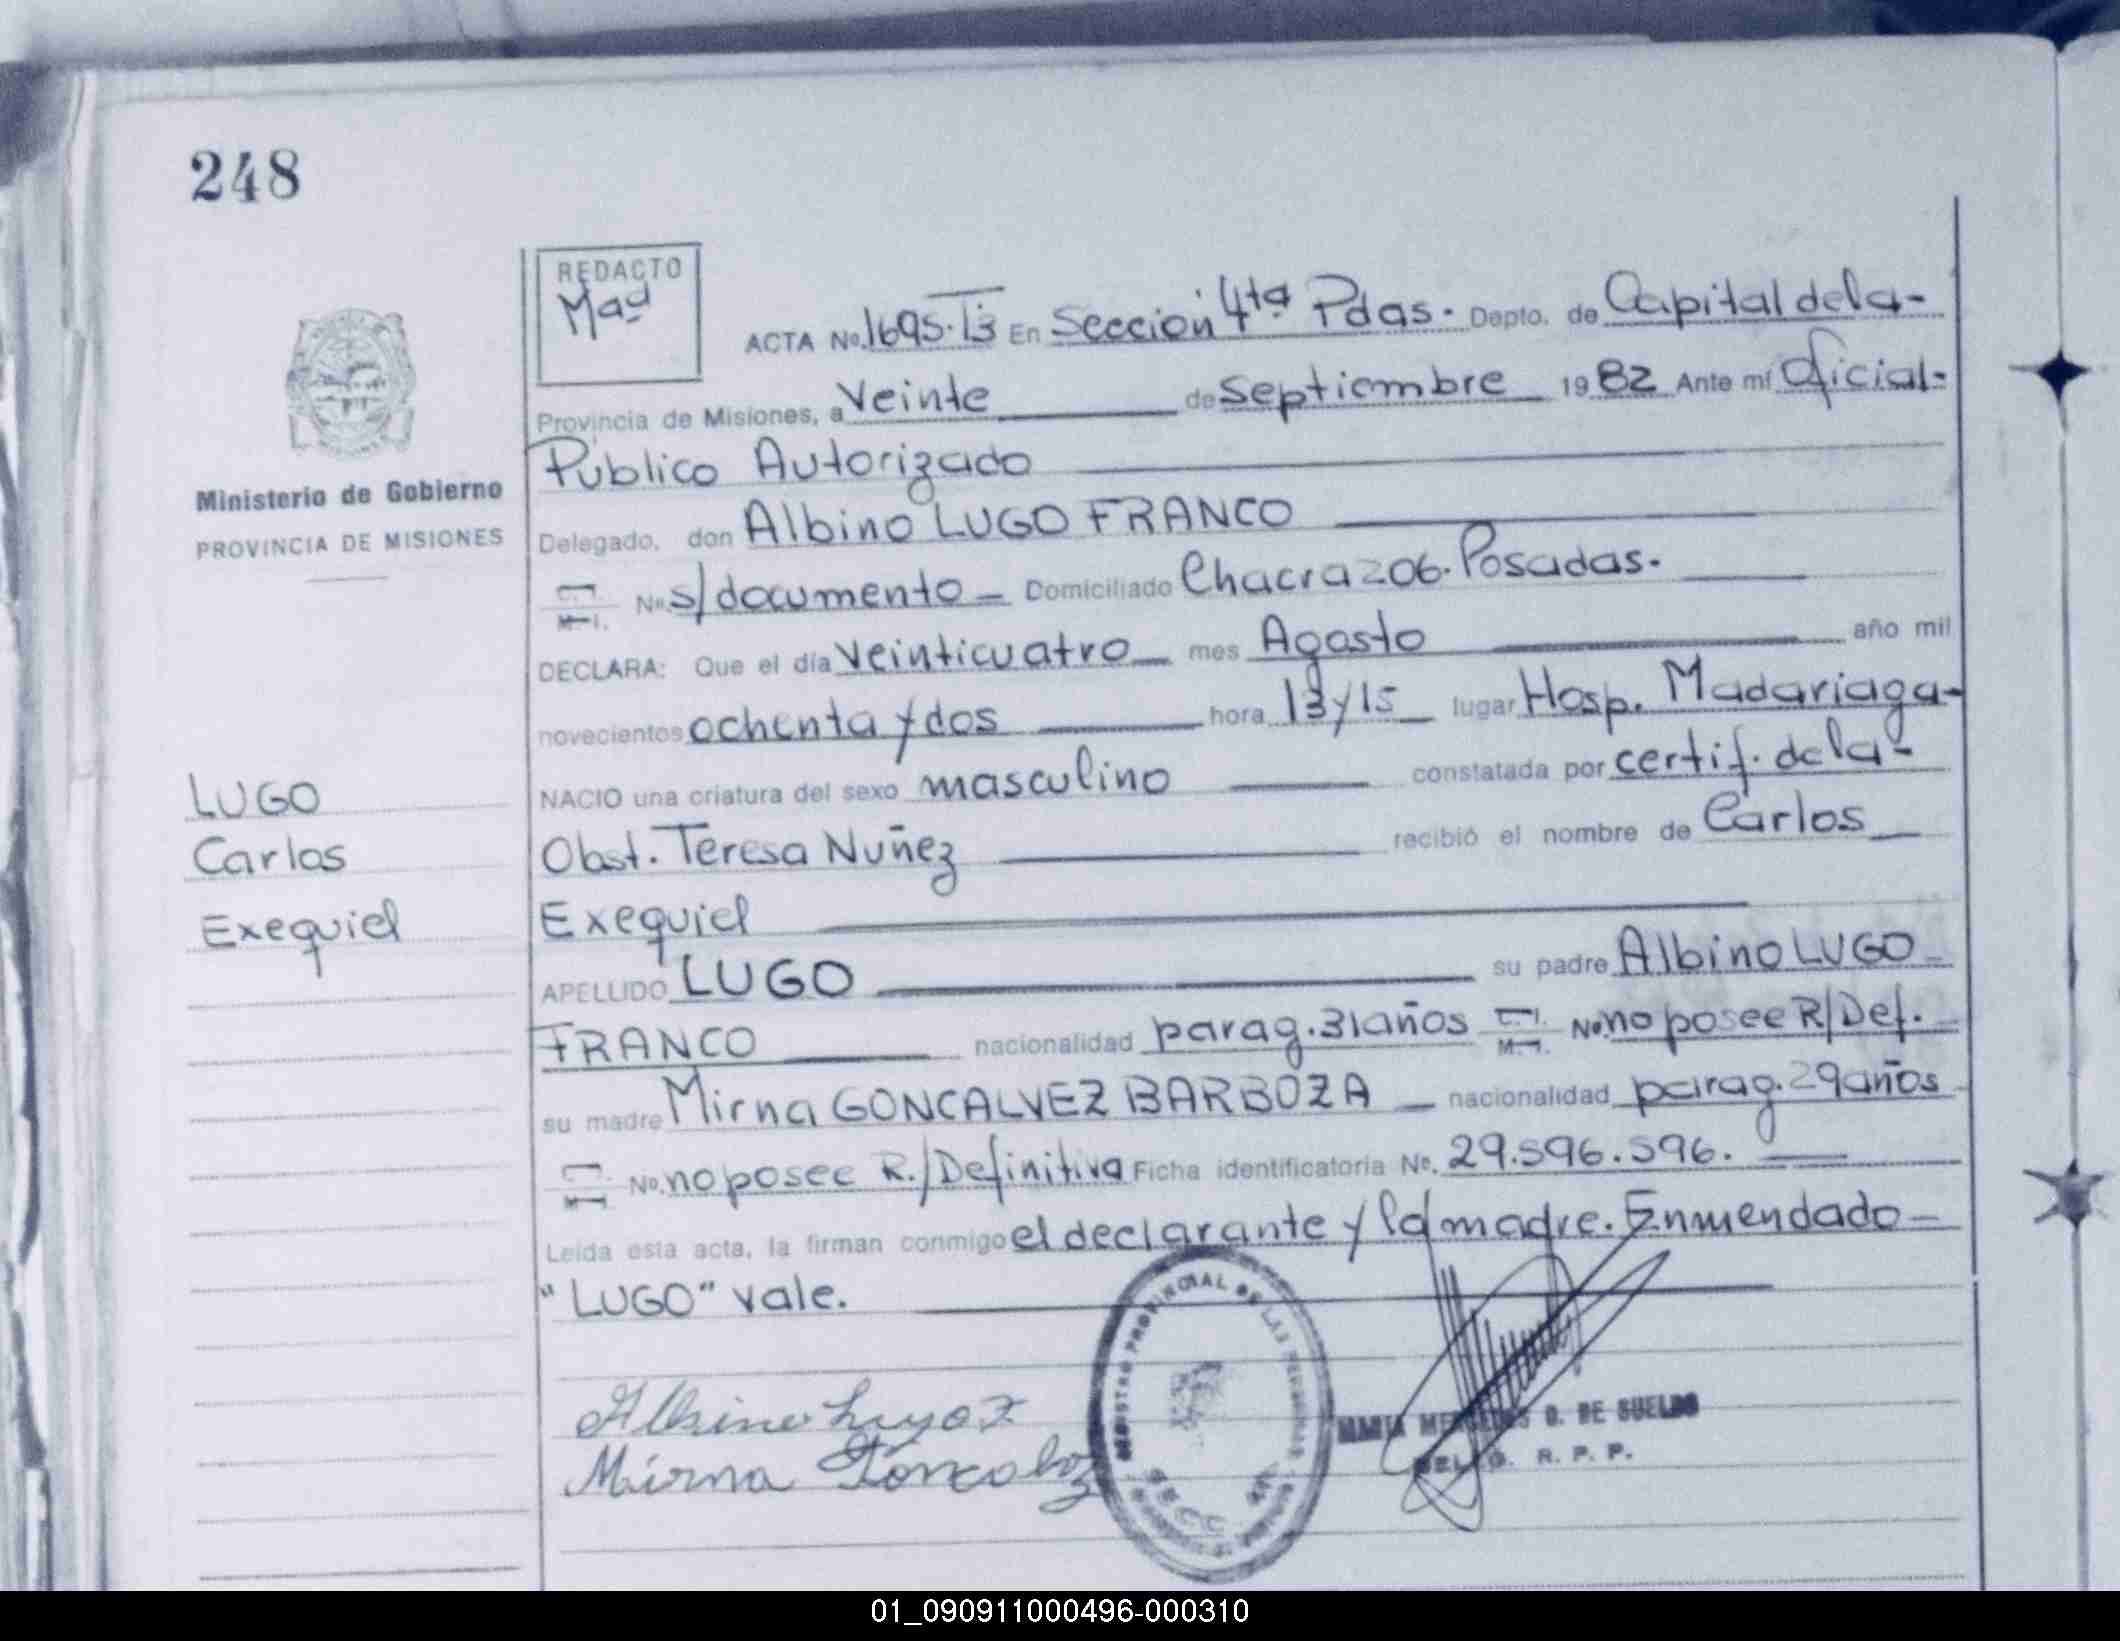 248
REDACTO
Mad
ACTA No. 1695. T3 En Sección 4ta Pdas. Depto. de Capital de la-
Provincia de Misiones, a Veinte de Septiembre 1982 Ante mí Oficial-
Publico Autorizado
Delegado, don Albino LUGO FRANCO
C.I. M.I. No. s/documento - Domiciliado Chacra 206. Posadas.
DECLARA: Que el día veinticuatro mes Agosto año mil
novecientos ochenta y dos hora 13 y 15 lugar Hosp. Madariaga-
NACIO una criatura del sexo masculino constatada por certif. de la-
Obst. Teresa Nuñez recibió el nombre de Carlos
Exequiel
APELLIDO LUGO su padre Albino LUGO
FRANCO nacionalidad parag. 31 años C.I. M.I. No. no posee R/Def.
su madre Mirna GONCALVEZ BARBOZA nacionalidad parag. 29 años
C.I. M.I. No. no posee R./Definitiva Ficha identificatoria No. 29.596.596.
Leída esta acta, la firman conmigo el declarante y la madre. Enmendado-
"LUGO" vale.
Ministerio de Gobierno
PROVINCIA DE MISIONES
LUGO
Carlos
Exequiel
Albino Lugo F
Mirna
REGISTRO PROVINCIAL DE LAS PERSONAS
SECC 4ta
MARIA MERCEDES D. DE SUELDO
R. P. P.
01_090911000496-000310